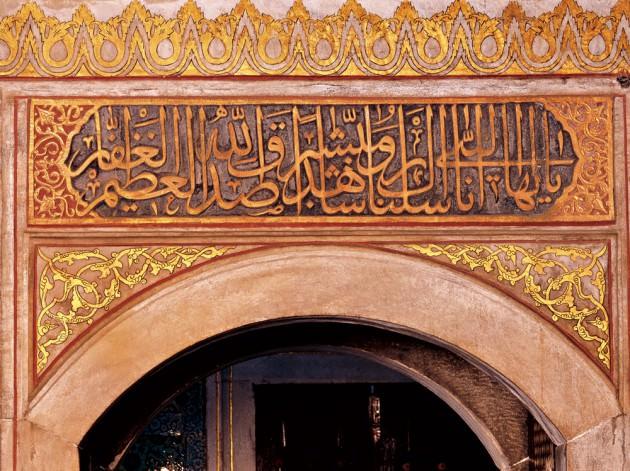 يا ايها النبى انا ارسلناك شاهدا ومبشرا صدق الله العظيم الغفار